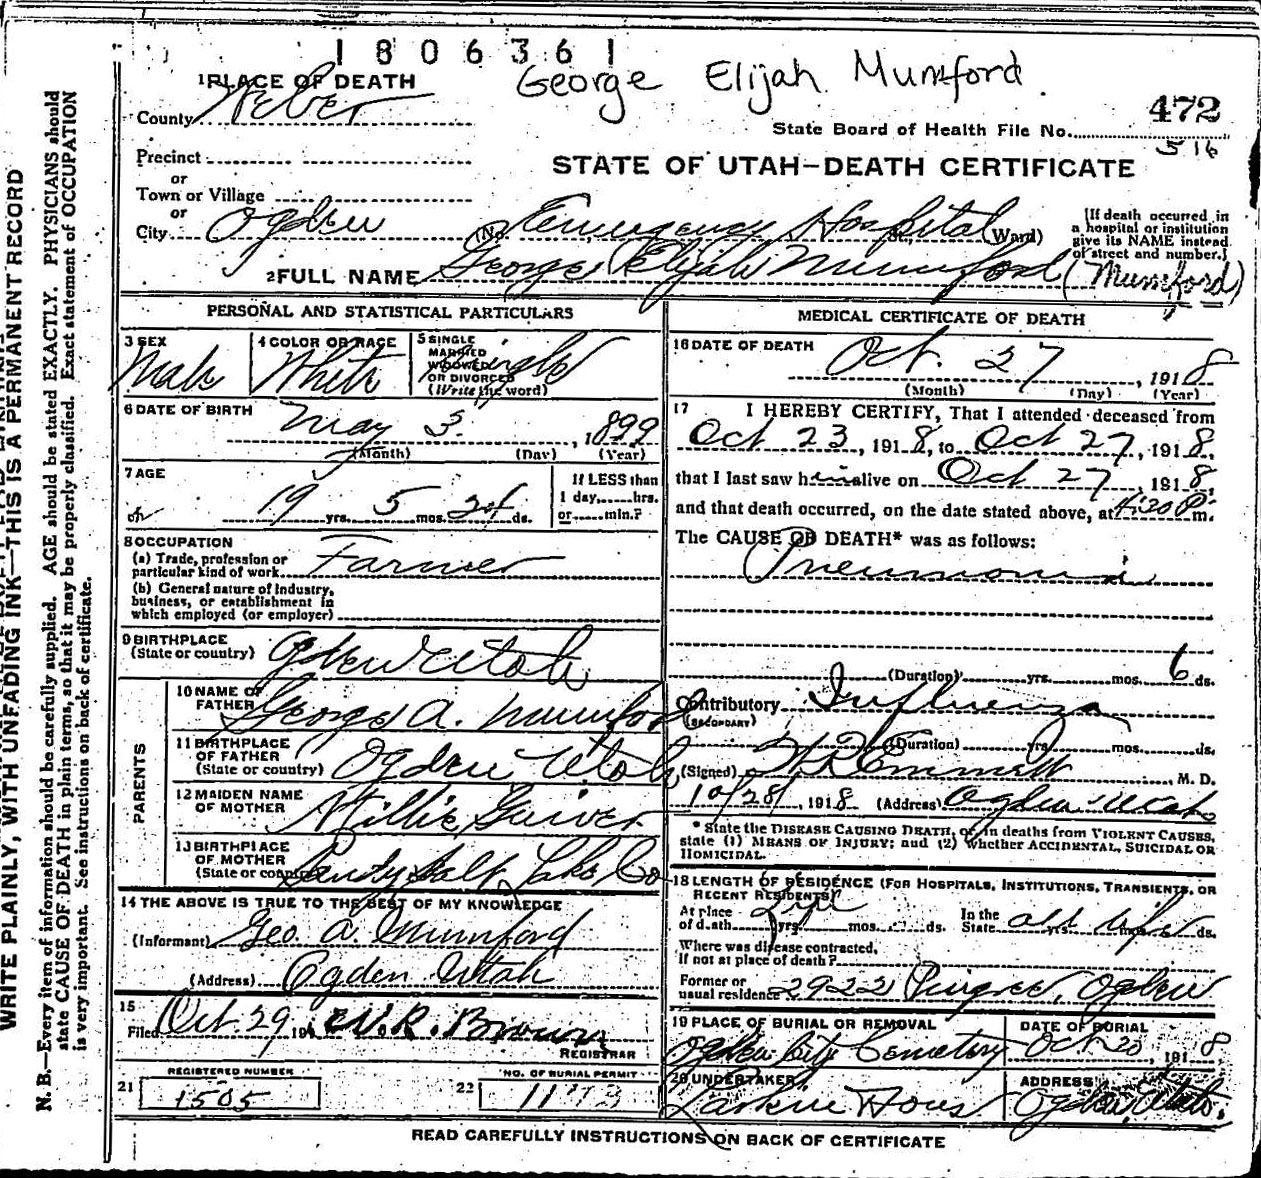 1806361
George Elijah Mumford
1 PLACE OF DEATH
County Weber
472
State Board of Health File No.
516
Precinct
or
Town or Village
or
City Ogden
STATE OF UTAH—DEATH CERTIFICATE
(No. Emergency Hospital St., Ward)
[If death occurred in a hospital or institution give its NAME instead of street and number.]
2 FULL NAME George Elijah Mumford (Mumford)
PERSONAL AND STATISTICAL PARTICULARS
3 SEX
Male
4 COLOR OR RACE
White
5 SINGLE
MARRIED
WIDOWED
OR DIVORCED
(Write the word)
Single
6 DATE OF BIRTH
May 3, 1899
(Month) (Day) (Year)
7 AGE
19 yrs. 5 mos. 24 ds.
If LESS than
1 day, hrs.
or min.?
8 OCCUPATION
(a) Trade, profession or
particular kind of work Farmer
(b) General nature of Industry,
business, or establishment in
which employed (or employer)
9 BIRTHPLACE
(State or country) Ogden Utah
PARENTS
10 NAME OF
FATHER George A. Mumford
11 BIRTHPLACE
OF FATHER
(State or country) Ogden Utah
12 MAIDEN NAME
OF MOTHER Millie
13 BIRTHPLACE
OF MOTHER
(State or country) Sandy Salt Lake Co
14 THE ABOVE IS TRUE TO THE BEST OF MY KNOWLEDGE
(Informant) Geo. A. Mumford
(Address) Ogden Utah
15
Filed Oct. 29, 191 W. R. Brown
REGISTRAR
REGISTERED NUMBER
21 1505
NO. OF BURIAL PERMIT
22 1173
MEDICAL CERTIFICATE OF DEATH
16 DATE OF DEATH
Oct. 27, 1918
(Month) (Day) (Year)
17 I HEREBY CERTIFY, That I attended deceased from
Oct 23, 1918, to Oct 27, 1918,
that I last saw him alive on Oct 27, 1918,
and that death occurred, on the date stated above, at 4:30 P m.
The CAUSE OF DEATH* was as follows:
Pneumonia
(Duration) yrs. mos. 6 ds.
Contributory Influenza
(SECONDARY)
(Duration) yrs. mos. ds.
(Signed) Emmett, M. D.
10/28, 1918 (Address) Ogden Utah
* State the DISEASE CAUSING DEATH, or, in deaths from VIOLENT CAUSES,
state (1) MEANS OF INJURY; and (2) whether ACCIDENTAL, SUICIDAL OR
HOMICIDAL.
18 LENGTH OF RESIDENCE (FOR HOSPITALS, INSTITUTIONS, TRANSIENTS, OR
RECENT RESIDENTS)
At place
of death Life yrs. mos. ds. In the
State all life yrs. ds.
Where was disease contracted,
If not at place of death?
Former or
usual residence 2922 Pingree, Ogden
19 PLACE OF BURIAL OR REMOVAL
Ogden City Cemetery
DATE OF BURIAL
Oct 1918
20 UNDERTAKER
Larkin
ADDRESS
Ogden, Utah.
READ CAREFULLY INSTRUCTIONS ON BACK OF CERTIFICATE
WRITE PLAINLY, WITH UNFADING INK—THIS IS A PERMANENT RECORD
N. B.—Every item of information should be carefully supplied. AGE should be stated EXACTLY. PHYSICIANS should
state CAUSE OF DEATH in plain terms, so that it may be properly classified. Exact statement of OCCUPATION
is very important. See instructions on back of certificate.